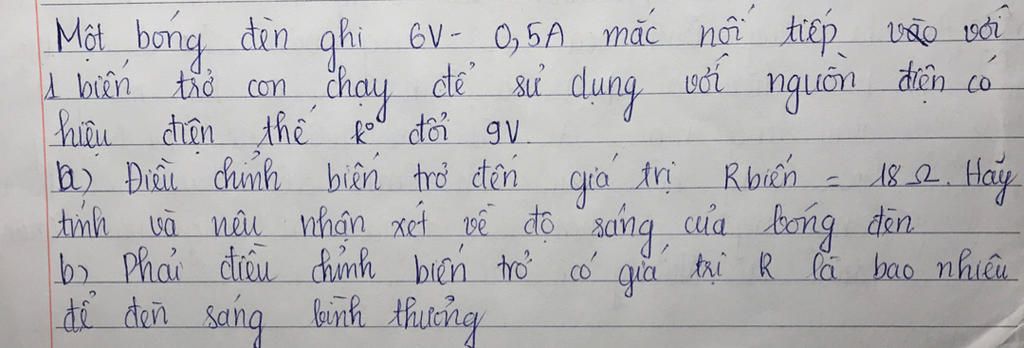 Một bóng đèn ghi 6V - 0,5A mắc nối tiếp với
1 biến trở con chạy để sử dụng với nguồn điện có
hiệu điện thế k° đổi 9V.
a) Điều chỉnh biến trở đến giá trị Rbiến = 18Ω. Hãy
tính và nêu nhận xét về độ sáng của bóng đèn
b) Phải điều chỉnh biến trở có giá trị R là bao nhiêu
để đèn sáng bình thường